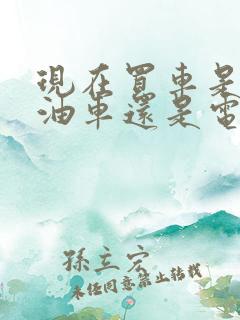 現在買車是
油車還是電
孫立宏
未经同意禁止转载